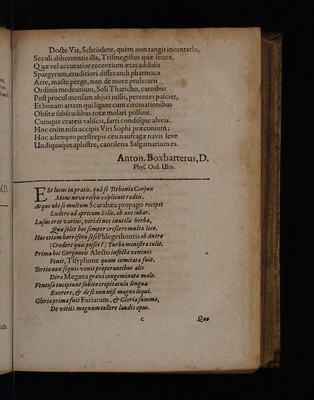 Docte Vir, Schrödere, quem non tangit incantatio,
Seculi abhorrentis illa, Trismegistus quæ senex,
Quæ vel accuratior recentium ætas addidit
Spagyrum, eruditiori disserandi pharmaca
Arte, macte perge, non de more proletarii
Ordinis medentium, Soli Tharicho, carnibus
Post procul mensam abjici jussis, petentes pascier,
Et bonam artem qui ligant cum circinationibus
Obsitæ subscudibus rotæ molari polline.
Cumque crateris valiscis, farri condusque alveis.
Hoc enim nisu accipis Viri Sophi præconium;
Hoc adempto perstrepis ceu naufraga navis leve
Undiquaque aplustre, cantilena Salgamarium es.
Anton. Boxbarterus, D.
Phys. Ord. Ulm.
ESt locus in pratis, quâ se Tithonia Conjux
Mane novo roseis explicuit radiis.
Atque ubi se multum Scarabæa propago recepit
Ludere ad apricum Solis, ab axe jubar.
Lusus erat varius, viridi nec inutilis herba,
Quæ solet hoc semper crescere multa loco.
Huc etiam horrifero sese Phlegethontis ab Antro
(Credere quis possit?) Turba ministra tulit.
Prima hoc Gorgoneis Alecto infecta venenis
Venit, Tisyphone quam comitata fuit.
Tertia non segnis venit properantibus alis
Dira Megæra gravi congeminata malo.
Ventosa incipiunt subito crepitacula lingua
Exerere, & de se non nisi magna loqui.
Gloria prima fuit Furiarum, & Gloria summa,
De vitiis magnum tollere laudis opus.
c Quo